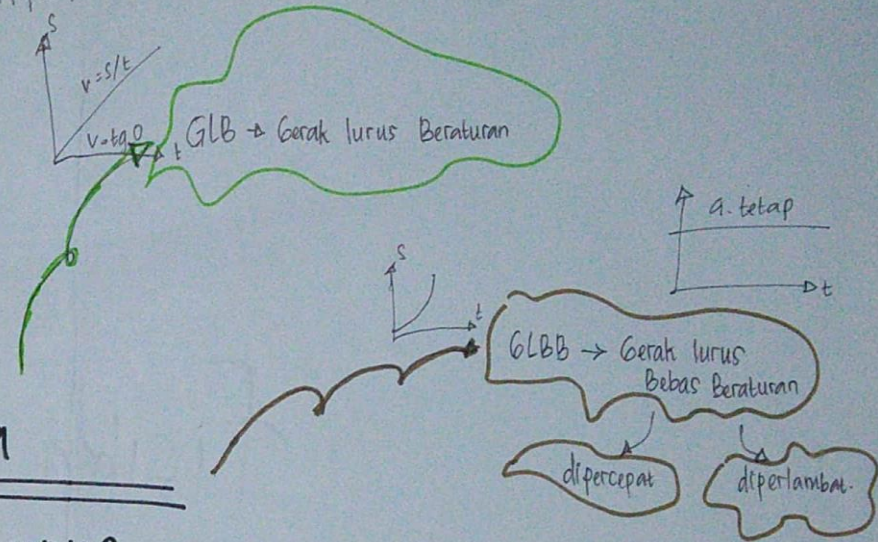 S
v=s/t
v=tg θ
t
GLB → Gerak lurus Beraturan
a. tetap
t
S
t
GLBB → Gerak lurus
Bebas Beraturan
dipercepat
diperlambat.